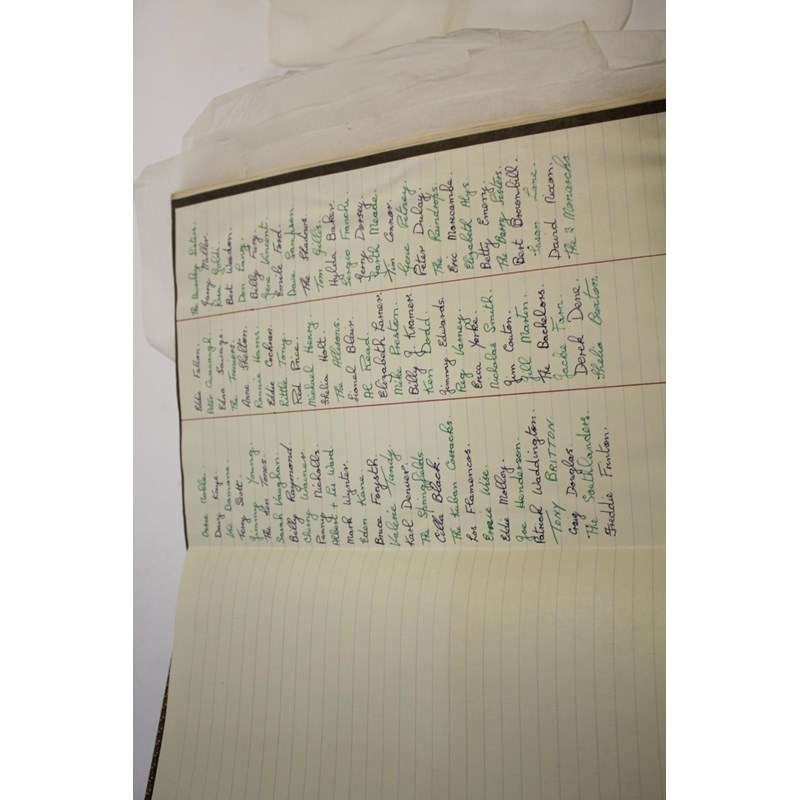 Dave Noble.
Danny Kaye.
Vic Damone.
Terry Scott.
Jimmy Young.
The Ken Tones.
Sarah Vaughan.
Billy Raymond
Cherry Wainer.
Penny Nicholls.
Albert & Les Ward
Mark Wynter.
Eden Kane.
Bruce Forsyth.
Valerie Tandy.
Karl Denver.
The Springfields.
Cilla Black.
The Kuban Cossacks.
Los Flamencos.
Ernie Wise.
Eddie Molloy.
Joe Henderson.
Patrick Waddington.
TONY BRITTON
Craig Douglas.
The Southlanders.
Freddie Frinton.
Eddie Falcon.
Peter Cavanagh.
Edna Savage.
The Trainers.
Anne Shelton.
Ronnie Harris.
Eddie Cochran.
Little Tony.
Red Price.
Michael Henry.
Sheila Holt.
The Allisons.
Lionel Blair.
Al Read.
Elizabeth Larner.
Mike Preston.
Billy J. Kramer
Ken Dodd.
Jimmy Edwards.
Reg Varney.
Erica Yorke.
Nicholas Smith.
Jim Couton.
Jill Martin.
The Bachelors.
Jackie Farn
Derek Dene.
Thelia Burton.
The Beverley Sisters.
Gary Miller.
Bert Weedon.
Don Lang.
Billy Fury.
Gene Vincent.
Emile Ford.
Dave Sampson
The Shadows.
Tom Gillis.
Hylda Baker.
Sergio Franchi.
Gerry Dorsey.
Garth Meade.
Tim Connor.
Gene Pitney.
Peter Dulay.
The Raindrops.
Eric Morecambe.
Elizabeth Alys.
Betty Emery.
The Penny Sisters.
Bert Brownbill.
Susan Lane.
David Nixon.
The 3 Monarchs